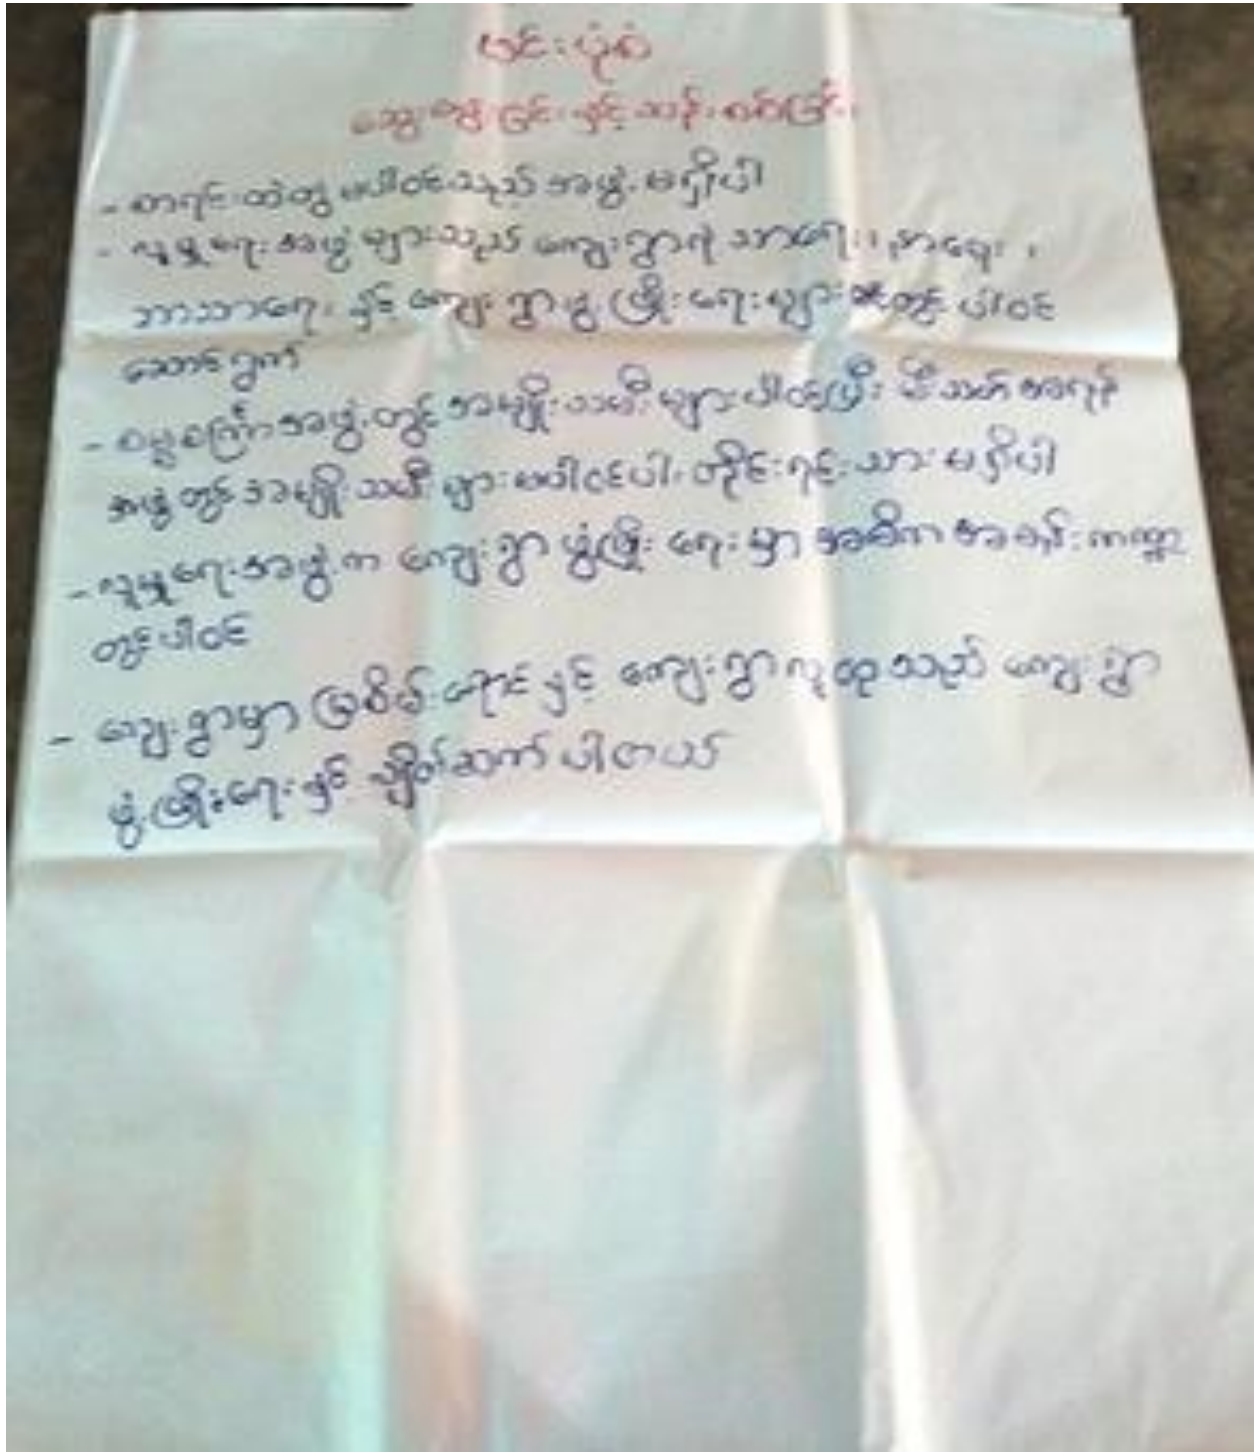 ဗင်းပုံစံ
ဆွေးနွေးခြင်း နှင့် သန်းစစ်ခြင်း
- စာရင်းထဲတွဲ မပါဝင်သည့် အဖွဲ့ မရှိပါ
- လူမှုရေးအဖွဲ့များသည် ကျေးရွာရဲ့ သာရေး၊ နာရေး၊
ဘာသာရေး နှင့် ကျေးရွာဖွံ့ဖြိုးရေးများ တွင် ပါဝင်
ဆောင်ရွက်
- ဓမ္မစကြာအဖွဲ့တွင် အမျိုးသမီးများပါဝင်ပြီး မီးသတ်အရန်
အဖွဲ့တွင် အမျိုးသမီးများ မပါဝင်ပါ၊ တိုင်းရင်းသား မရှိပါ
- လူမှုရေးအဖွဲ့က ကျေးရွာ ဖွံ့ဖြိုးရေးမှာ အဓိက အခန်းကဏ္ဍ
တွင်ပါဝင်
- ကျေးရွာမှာ မြစိမ်းရောင် နှင့် ကျေးရွာလူထုသည် ကျေးရွာ
ဖွံ့ဖြိုးရေးနှင့် ချိတ်ဆက်ပါတယ်